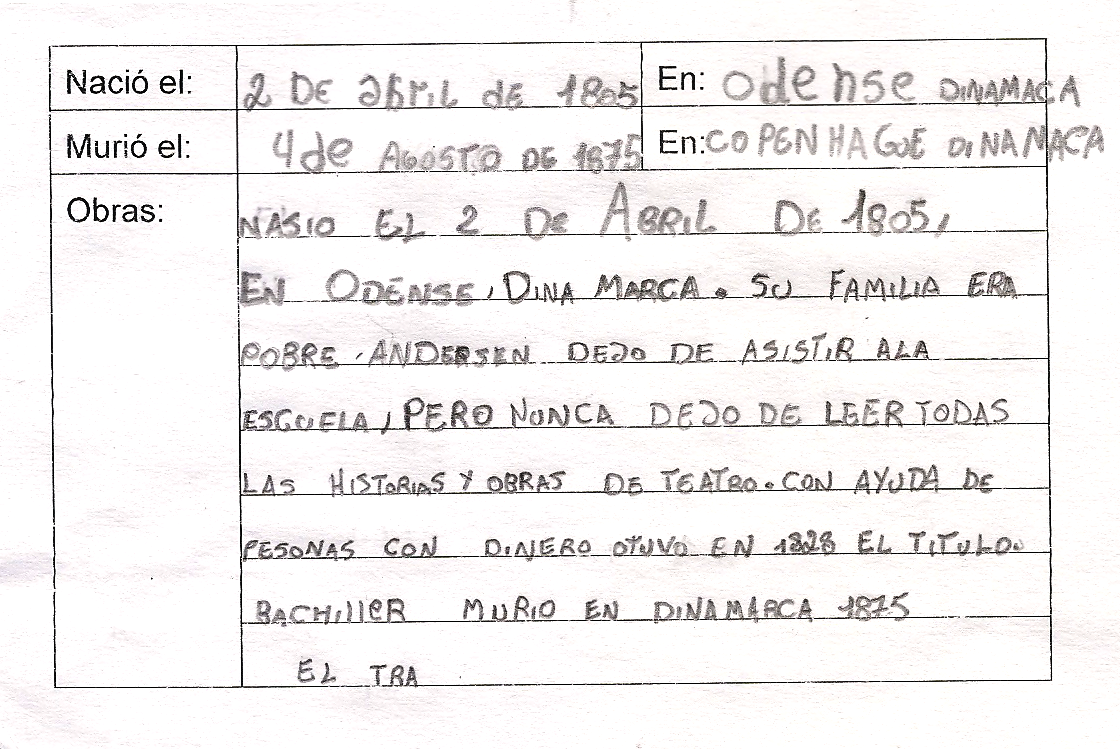 Nació el: 2 DE abril de 1805 En: Odense DINAMACA
Murió el: 4 de AGOSTO DE 1875 En: COPENHAGUE DINANACA
Obras: NASIO EL 2 DE ABRIL DE 1805,
EN ODENSE, DINA MARCA. SU FAMILIA ERA
POBRE, ANDERSEN DEJO DE ASISTIR ALA
ESCUELA, PERO NUNCA DEJO DE LEER TODAS
LAS HISTORIAS Y OBRAS DE TEATRO. CON AYUDA DE
PESONAS CON DINERO OTUVO EN 1828 EL TITULO.
BACHILLER MURIO EN DINAMARCA 1875
EL TRA